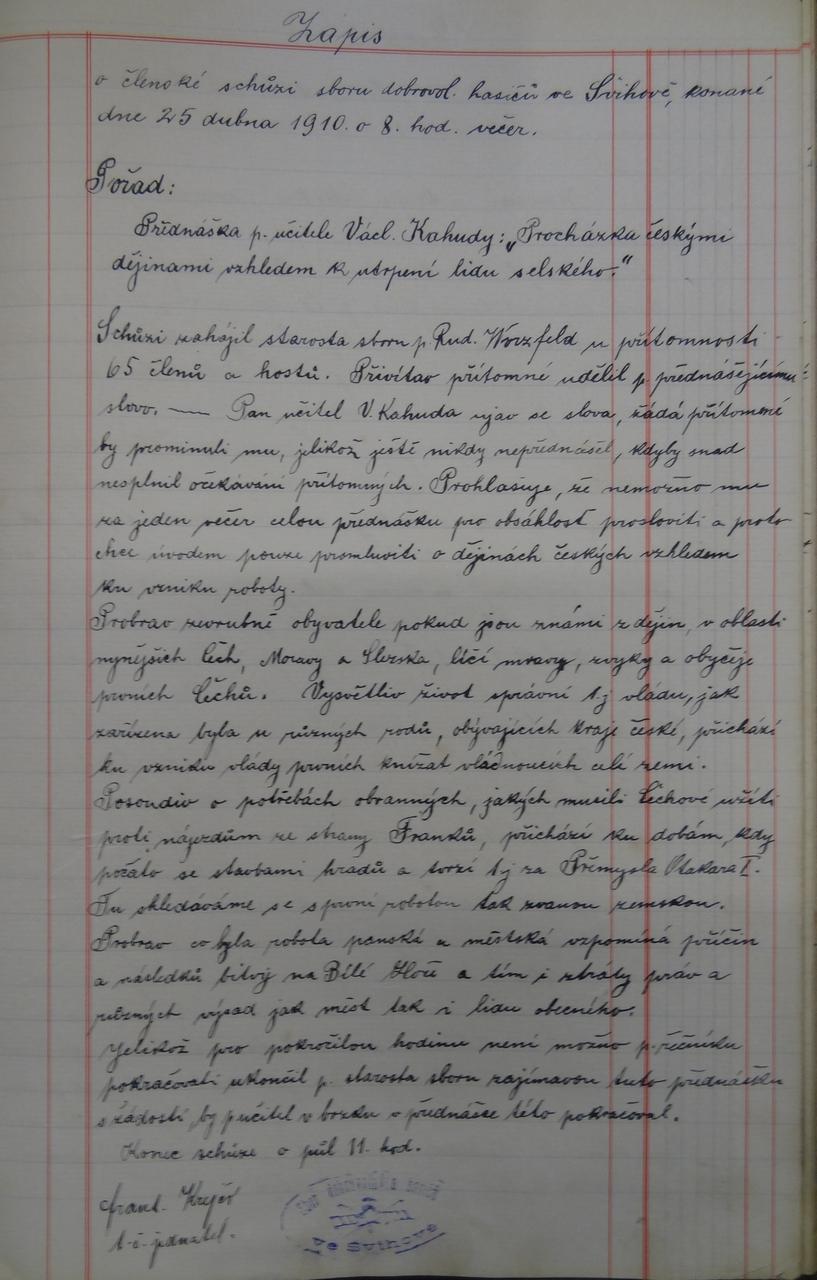 Zápis
o členské schůzi sboru dobrovol. hasičů ve Švihově, konané
dne 25 dubna 1910. o 8. hod. večer.
Pořad:
Přednáška p. učitele Václ. Kahudy: „Procházka českými
dějinami vzhledem k utrpení lidu selského."
Schůzi zahájil starosta sboru p. Rud. Worzfeld u přítomnosti
65 členů a hostů. Přivítav přítomné udělil p. přednášejícímu
slovo. — Pan učitel V. Kahuda ujav se slova, žádá přítomné
by prominuli mu, jelikož ještě nikdy nepřednášel, kdyby snad
nesplnil očekávání přítomných. Prohlašuje, že nemožno mu
za jeden večer celou přednášku pro obsáhlost prosloviti a proto
chce úvodem pouze promluviti o dějinách českých vzhledem
ku vzniku roboty.
Probrav zevrubně obyvatele pokud jsou známi z dějin, v oblasti
nynějších Čech, Moravy a Slezska, líčí mravy, zvyky a obyčeje
prvních Čechů. Vysvětliv život správní t.j vládu, jak
zařízena byla u různých rodů, obývajících kraje české, přichází
ku vzniku vlády prvních knížat vládnoucích celé zemi.
Posoudiv o potřebách obranných, jakých musili Čechové užíti
proti nájezdům ze strany Franků, přichází ku dobám, kdy
počato se stavbami hradů a tvrzí t.j za Přemysla Otakara I.
Tu shledáváme se s první robotou tak zvanou zemskou.
Probrav co byla robota panská a městská vzpomíná příčin
a následků bitvy na Bílé Hoře a tím i ztráty práv a
různých výsad jak měst tak i lidu obecného.
Jelikož pro pokročilou hodinu není možno p. řečníku
pokračovati ukončil p. starosta sboru zajímavou tuto přednášku
s žádostí, by p učitel v brzku v přednášce této pokračoval.
Konec schůze o půl 11. hod.
Frant. Krejčí
t.č. jednatel.
Sbor dobrovolných hasičů
ve Švihově